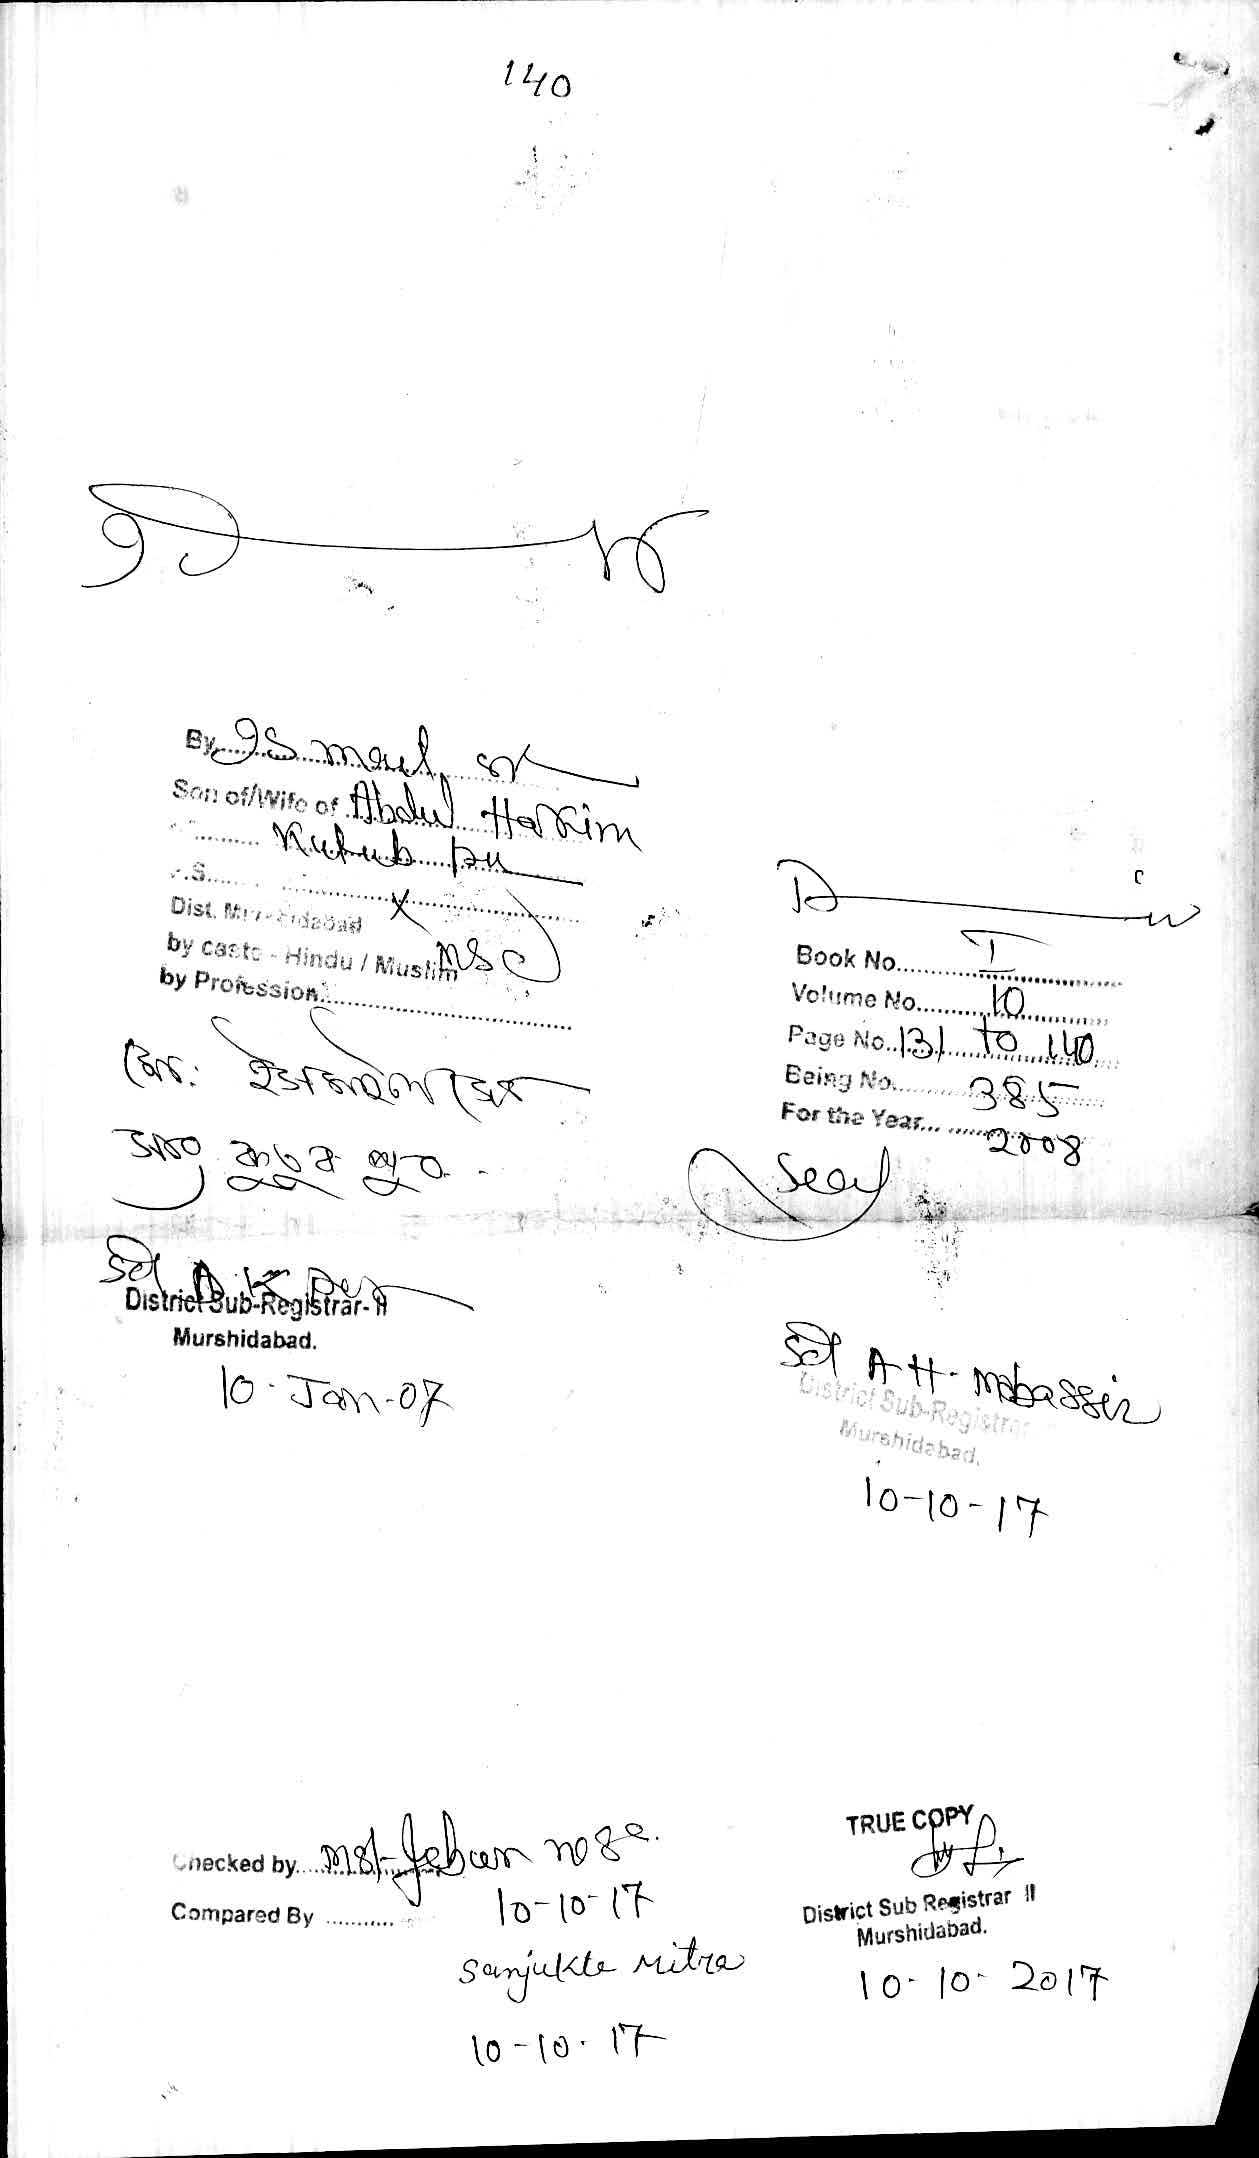 140
By Ismail Sk
Son of/Wife of Abdul Hakim
Kutub pu
P.S.
Dist. Murshidabad X
by caste - Hindu / Muslim
by Profession
মোঃ ইসমাইল সেখ
সাং কুতুবপুর
Sd/ A K
District Sub-Registrar-II
Murshidabad.
10-Jan-07
Book No. I
Volume No. 10
Page No. 131 to 140
Being No. 385
For the Year 2008
Seal
Sd/ A H. Mobassir
District Sub-Registrar
Murshidabad.
10-10-17
Checked by Mst Jebun
10-10-17
Compared By
Sanjukta Mitra
10-10-17
TRUE COPY
District Sub Registrar II
Murshidabad.
10-10-2017